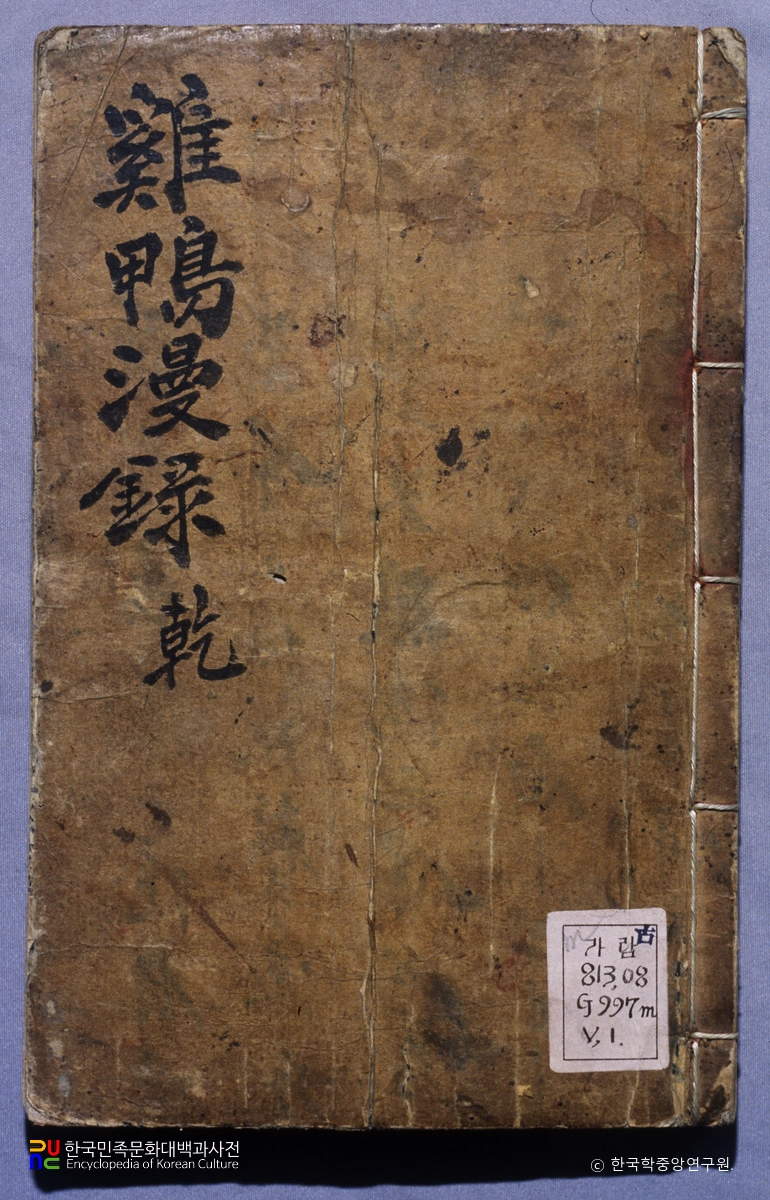 雞鴨漫錄 乾
古
가람
813.08
G997m
V.1.
한국민족문화대백과사전
Encyclopedia of Korean Culture
© 한국학중앙연구원.